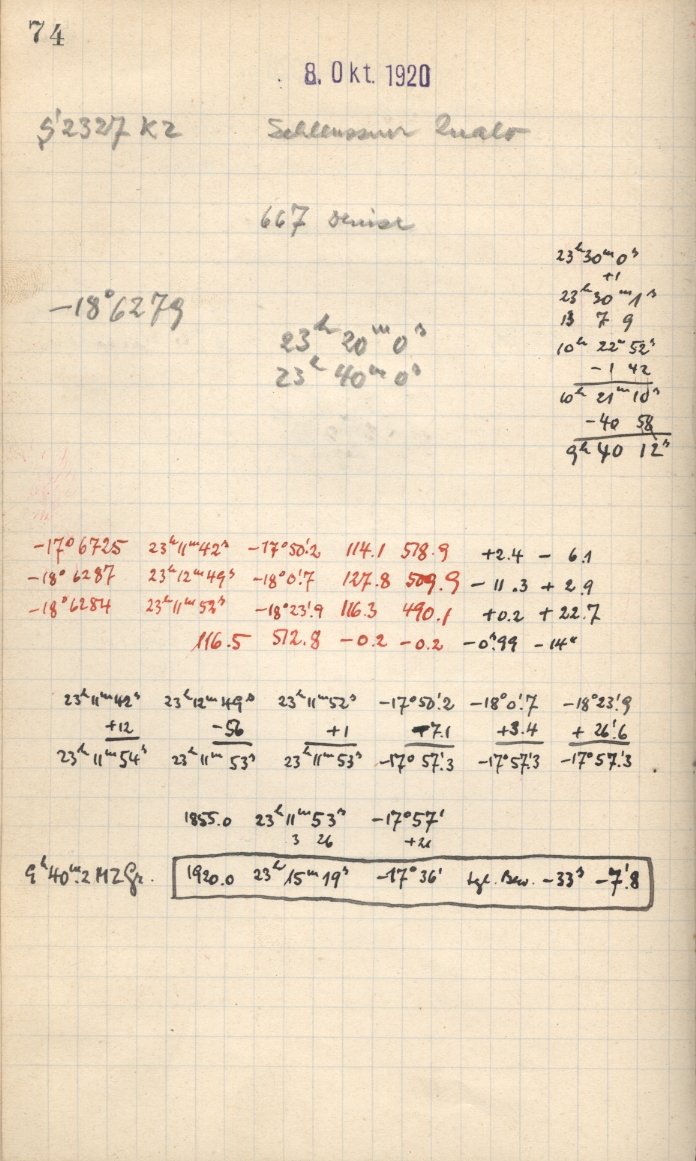 74
8. Okt. 1920
2327 K2 Schleussner
667 Denise
23ʰ30ᵐ0ˢ
+1
23ʰ30ᵐ1ˢ
13 7 9
10ʰ 22ᵐ 52ˢ
-1 42
10ʰ 21ᵐ 10ˢ
-40 58
9ʰ 40 12ˢ
-18°6279
23ʰ 20ᵐ 0ˢ
23ʰ 40ᵐ 0ˢ
-17°6725 23ʰ11ᵐ42ˢ -17°50'.2 114.1 518.9 +2.4 - 6.1
-18°6287 23ʰ12ᵐ49ˢ -18°0'.7 127.8 509.9 -11.3 + 2.9
-18°6284 23ʰ11ᵐ52ˢ -18°23'.9 116.3 490.1 +0.2 + 22.7
116.5 512.8 -0.2 -0.2 -0ˢ.99 -14"
23ʰ11ᵐ42ˢ 23ʰ12ᵐ49ˢ 23ʰ11ᵐ52ˢ -17°50'.2 -18°0'.7 -18°23'.9
+12 -56 +1 -7.1 +3.4 + 26'.6
23ʰ11ᵐ54ˢ 23ʰ11ᵐ53ˢ 23ʰ11ᵐ53ˢ -17°57'.3 -17°57'.3 -17°57'.3
1855.0 23ʰ11ᵐ53ˢ -17°57'
3 26 +21
9ʰ40ᵐ.2 MZ Gr. 1920.0 23ʰ15ᵐ19ˢ -17°36' tgl. Bew. -33ˢ -7'.8